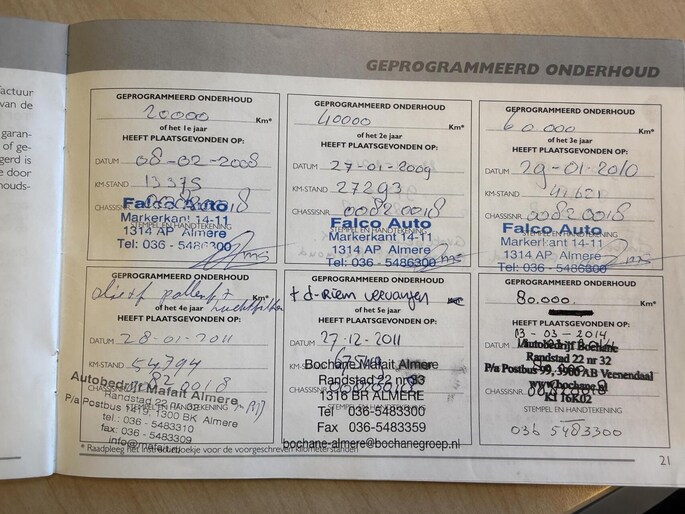 actuur
van de
garan-
of ge-
gerd is
e door
houds-
GEPROGRAMMEERD ONDERHOUD
GEPROGRAMMEERD ONDERHOUD
20000 Km*
of het 1e jaar
HEEFT PLAATSGEVONDEN OP:
DATUM 08-02-2008
KM-STAND 13375
CHASSISNR.
Falco Auto
STEMPEL EN HANDTEKENING
Markerkant 14-11
1314 AP Almere
Tel: 036 - 5486300
GEPROGRAMMEERD ONDERHOUD
40000 Km*
of het 2e jaar
HEEFT PLAATSGEVONDEN OP:
DATUM 27-01-2009
KM-STAND 27293
CHASSISNR. 00820018
Falco Auto
Markerkant 14-11
1314 AP Almere
Tel: 036 - 5486300
GEPROGRAMMEERD ONDERHOUD
60.000 Km*
of het 3e jaar
HEEFT PLAATSGEVONDEN OP:
DATUM 29-01-2010
KM-STAND
CHASSISNR. 00820018
Falco Auto
STEMPEL EN HANDTEKENING
Markerkant 14-11
1314 AP Almere
Tel: 036 - 5486300
GEPROGRAMMEERD ONDERHOUD
of het 4e jaar
HEEFT PLAATSGEVONDEN OP:
DATUM 28-01-2011
KM-STAND 54794
CHASSISNR.
Autobedrijf Mafait Almere
Randstad 22 nr. 32
P/a Postbus 1419, 1300 BK Almere
tel.: 036 - 5483310
fax: 036 - 5483309
GEPROGRAMMEERD ONDERHOUD
+ d-Riem vervangen Km*
of het 5e jaar
HEEFT PLAATSGEVONDEN OP:
DATUM 27-12-2011
KM-STAND
CHASSISNR.
Bochane Mafait Almere
Randstad 22 nr 33
1316 BR ALMERE
Tel 036-5483300
Fax 036-5483359
bochane-almere@bochanegroep.nl
GEPROGRAMMEERD ONDERHOUD
80.000. Km*
HEEFT PLAATSGEVONDEN OP:
03-03-2014
Autobedrijf Bochane
Randstad 22 nr 32
P/a Postbus 99, 3900 AB Veenendaal
www.bochane.nl
STEMPEL EN HANDTEKENING
036 5483300
* Raadpleeg het instructieboekje voor de voorgeschreven kilometerstanden
21